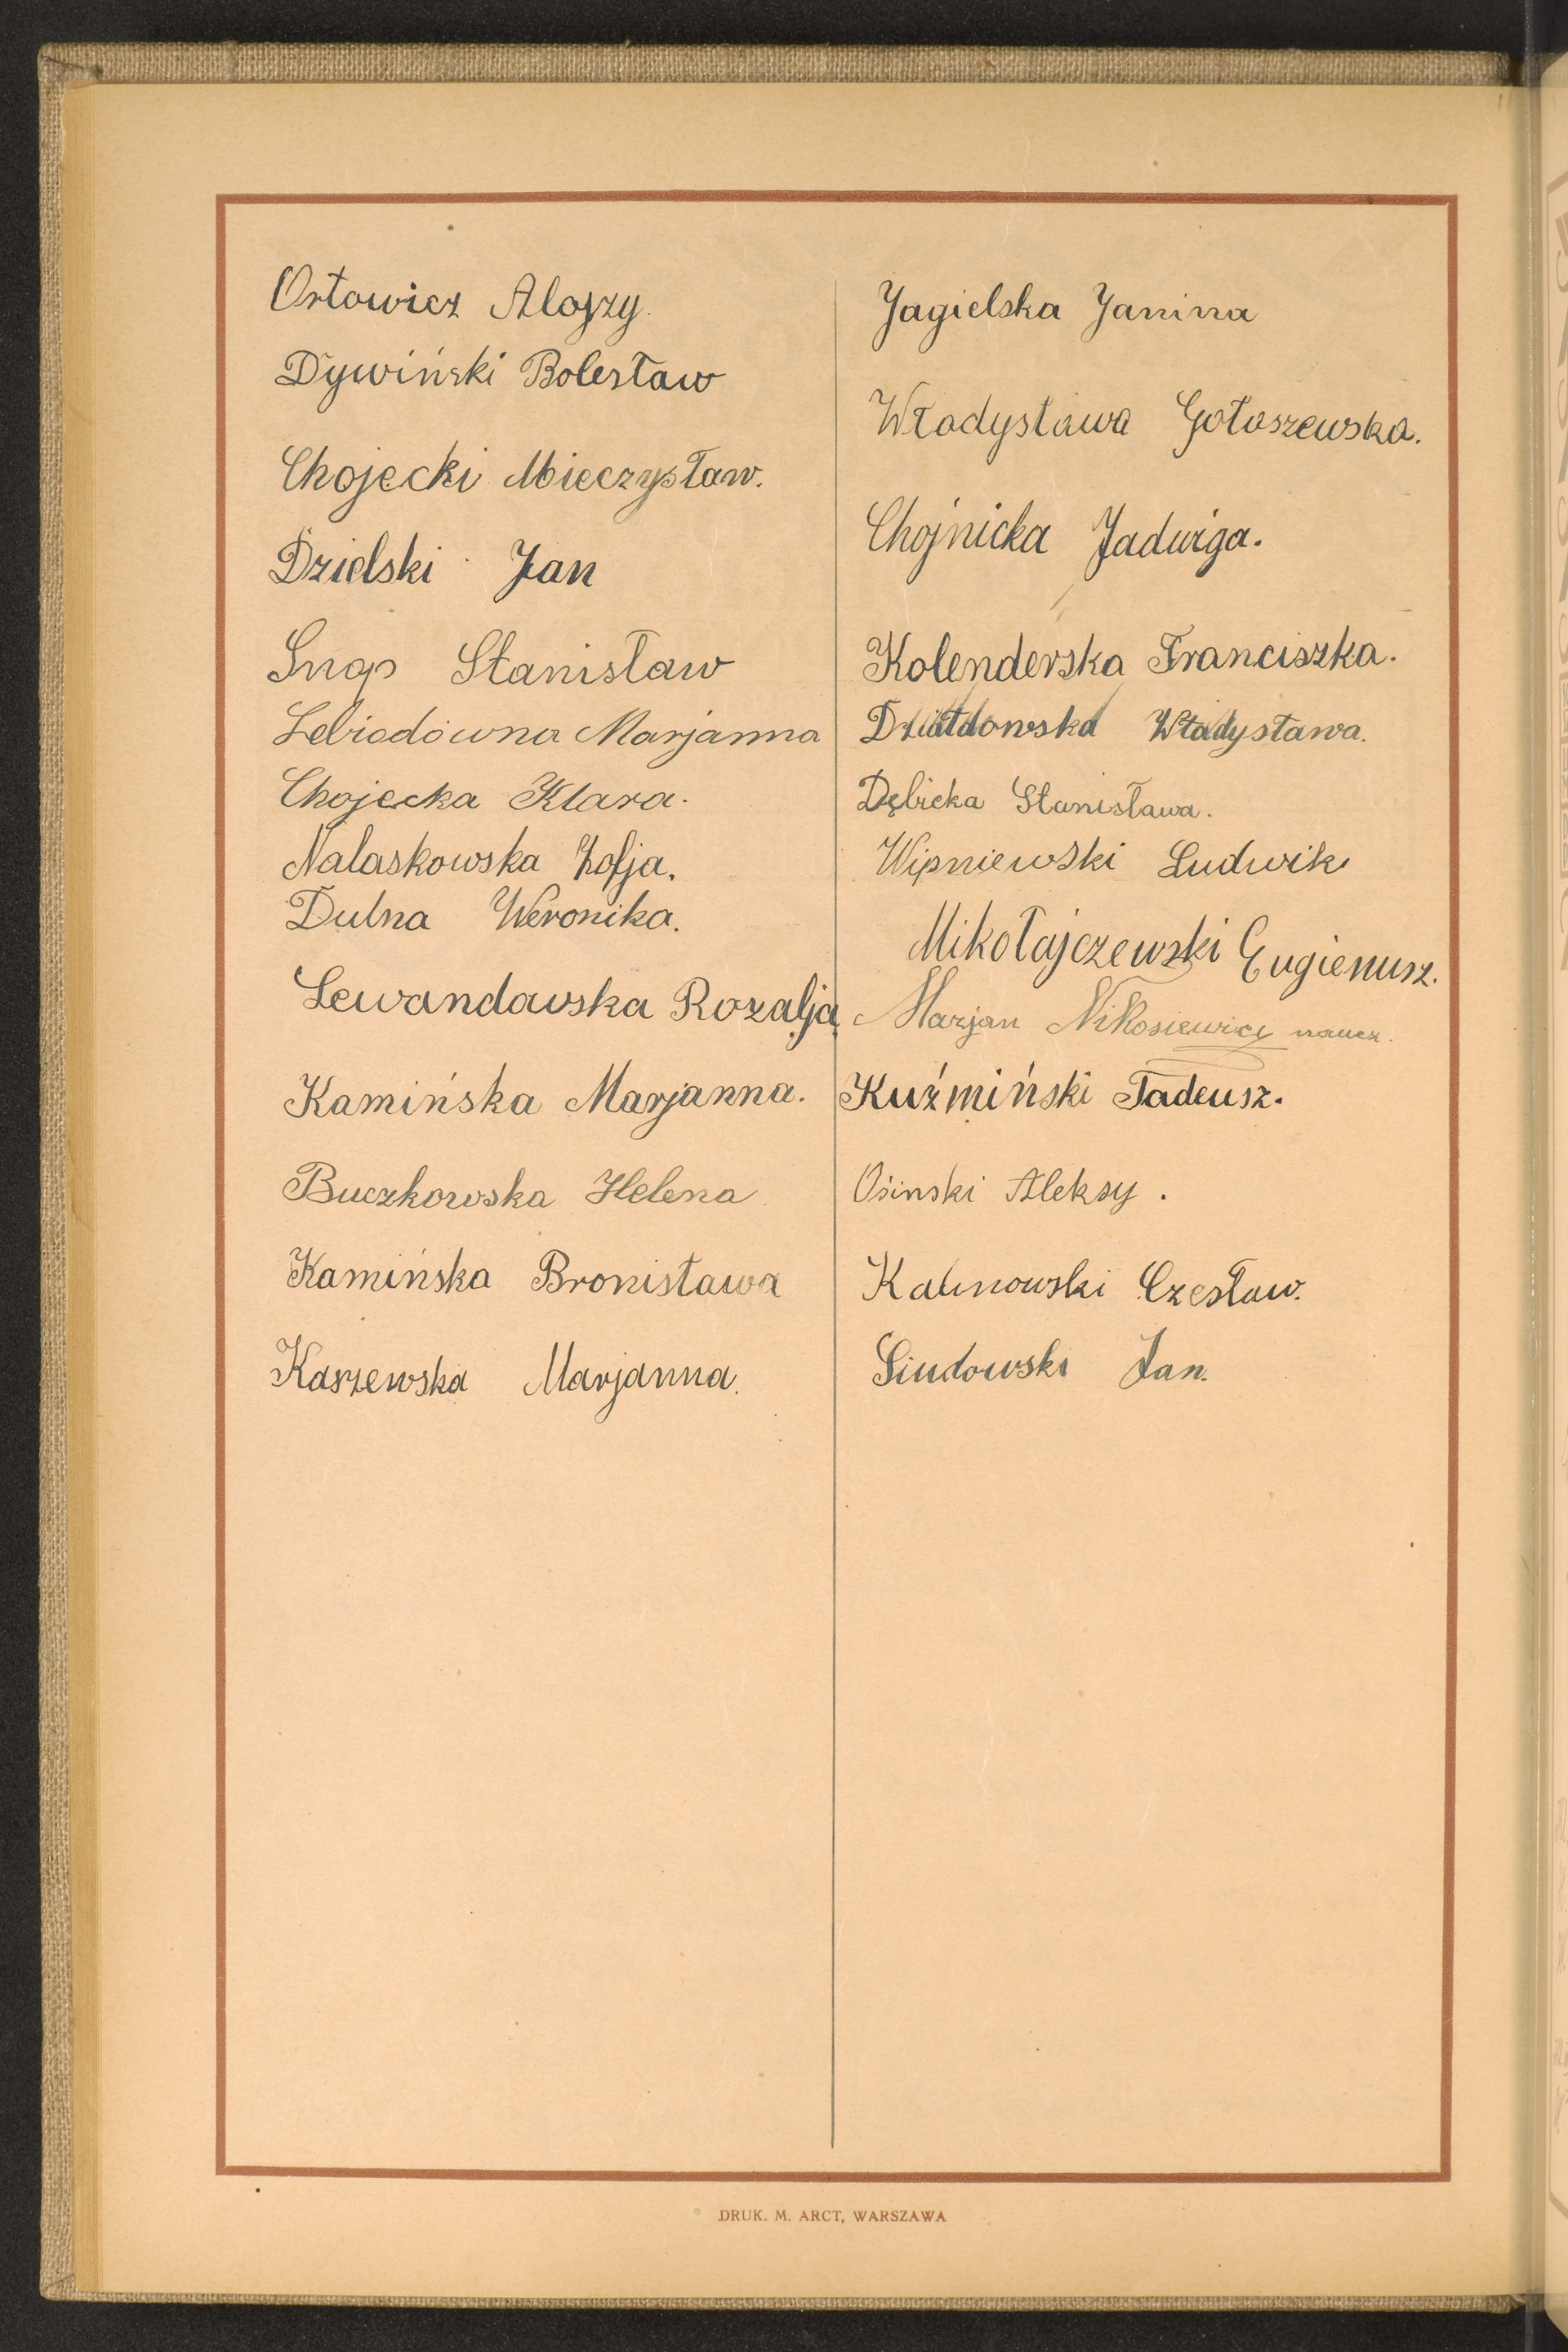 Orłowicz Alojzy.
Dywiński Bolesław
Chojecki Mieczysław.
Dzielski Jan
Stanisław
Lebiodówna Marjanna
Chojecka Klara.
Nalaskowska Zofja.
Dulna Weronika.
Lewandowska Rozalja
Kamińska Marjanna.
Buczkowska Helena
Kamińska Bronisława
Kaszewska Marjanna.
Jagielska Janina
Władysława Gołoszewska.
Chojnicka Jadwiga.
Kolenderska Franciszka.
Działdowska Władysława.
Dębicka Stanisława.
Wiśniewski Ludwik
Mikołajczewski Eugienusz.
Marjan Nikosiewicz naucz.
Kuźmiński Tadeusz.
Osinski Aleksy.
Kalinowski Czesław.
Siudowski Jan.
DRUK. M. ARCT, WARSZAWA